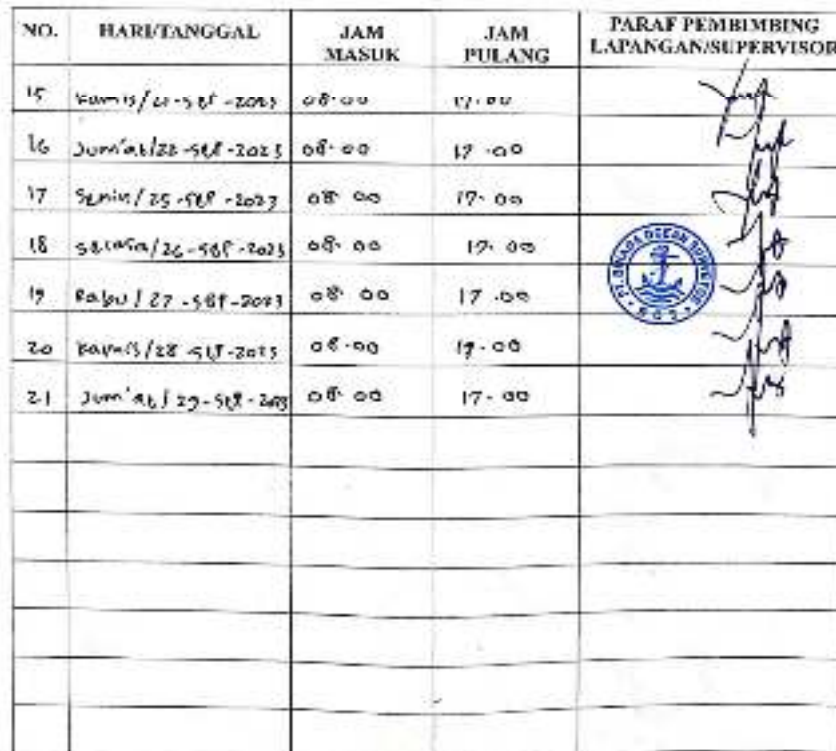 NO. HARI/TANGGAL JAM MASUK JAM PULANG PARAF PEMBIMBING LAPANGAN/SUPERVISOR
15 Kamis/21-SEP-2023 08.00 17.00
16 Jum'at/22-SEP-2023 08.00 17.00
17 Senin/25-SEP-2023 08.00 17.00
18 Selasa/26-SEP-2023 08.00 17.00
19 Rabu/27-SEP-2023 08.00 17.00
20 Kamis/28-SEP-2023 08.00 17.00
21 Jum'at/29-SEP-2023 08.00 17.00
OCEAN